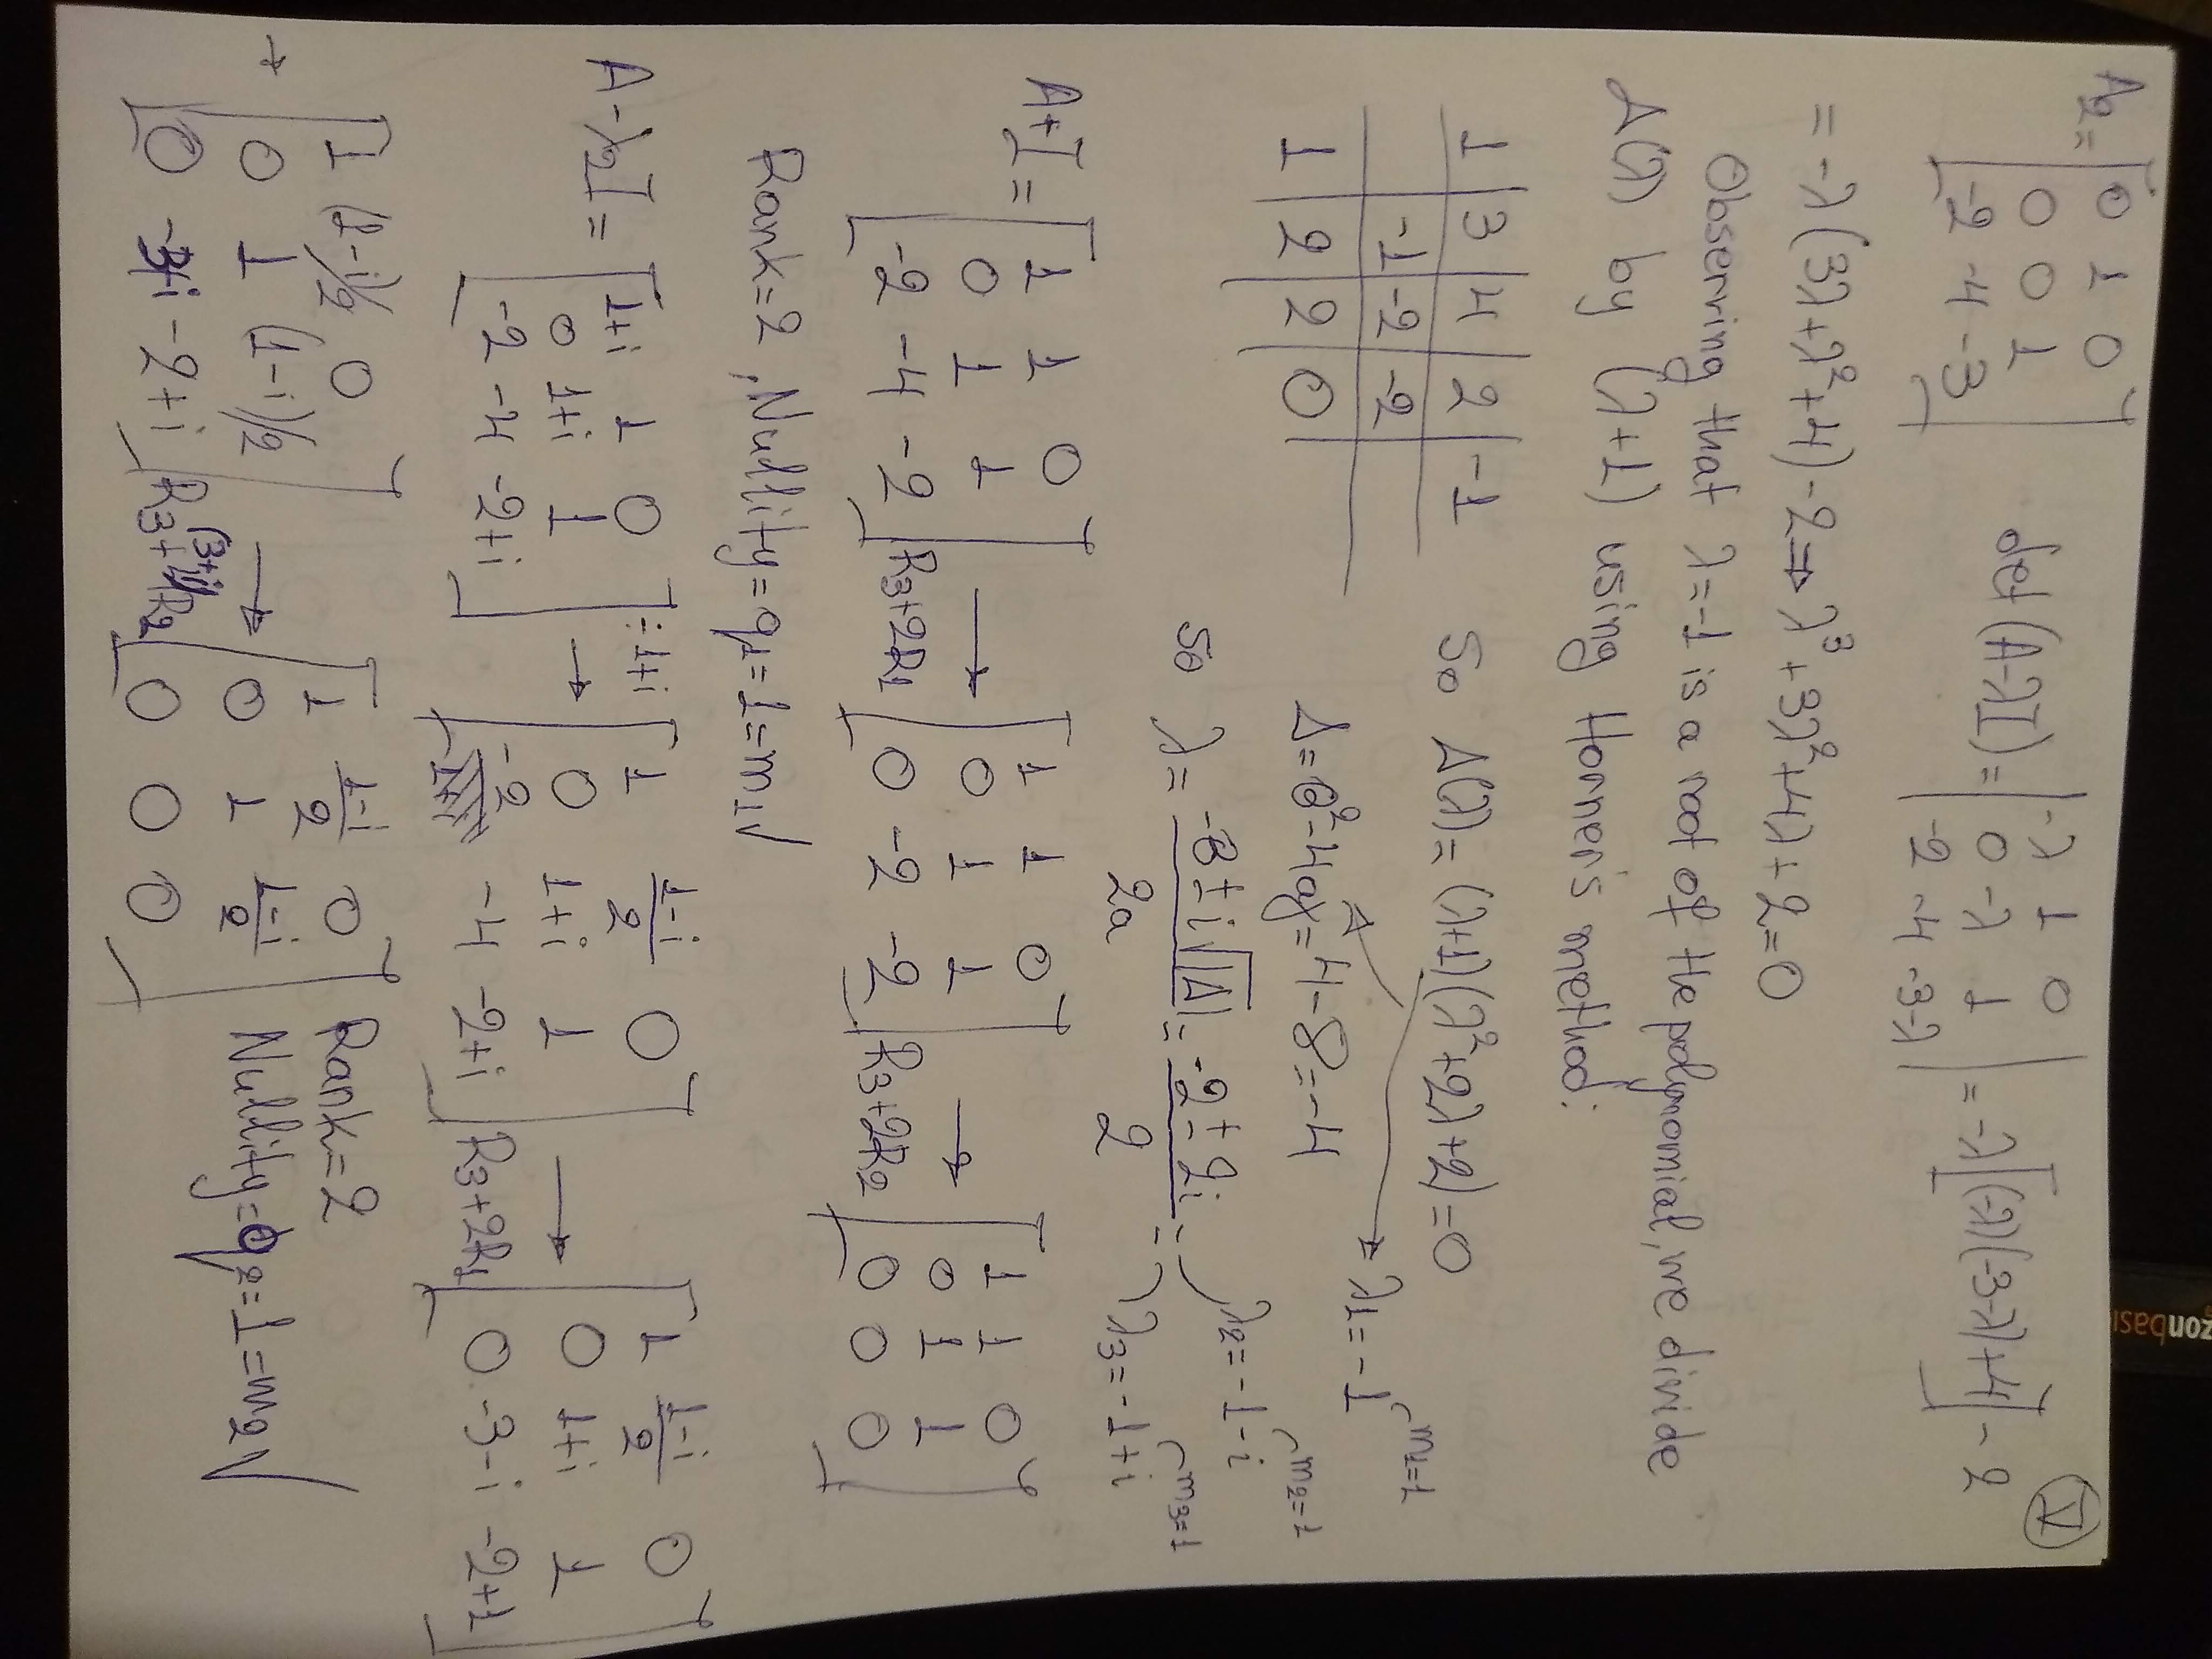 zonbasi
V
A2 = [0 1 0; 0 0 1; -2 -4 -3]
det(A-λI) = |-λ 1 0; 0 -λ 1; -2 -4 -3-λ| = -λ[(-λ)(-3-λ)+4] - 2
= -λ(3λ+λ²+4) - 2 ⇒ λ³+3λ²+4λ+2=0
Observing that λ=-1 is a root of the polynomial, we divide
Δ(λ) by (λ+1) using Horner's method:
1 | 3 | 4 | 2 | -1
-1 | -2 | -2
1 | 2 | 2 | 0
So Δ(λ) = (λ+1)(λ²+2λ+2) = 0
λ1=-1 m1=1
Δ=β²-4αγ=4-8=-4
So λ = (-β ± i√|Δ|)/2α = (-2 ± 2i)/2 =
λ2=-1-i m2=1
λ3=-1+i m3=1
A+I = [1 1 0; 0 1 1; -2 -4 -2] R3+2R1 → [1 1 0; 0 1 1; 0 -2 -2] R3+2R2 → [1 1 0; 0 1 1; 0 0 0]
Rank=2, Nullity=q1=1=m1 ✓
A-λ2I = [1+i 1 0; 0 1+i 1; -2 -4 -2+i] :1+i → [1 (1-i)/2 0; 0 1+i 1; -2 -4 -2+i] R3+2R1 → [1 (1-i)/2 0; 0 1+i 1; 0 -3-i -2+1]
→ [1 (1-i)/2 0; 0 1 (1-i)/2; 0 -3+i -2+i] R3+(3+i)R2 → [1 (1-i)/2 0; 0 1 (1-i)/2; 0 0 0]
Rank=2
Nullity=q2=1=m2 ✓